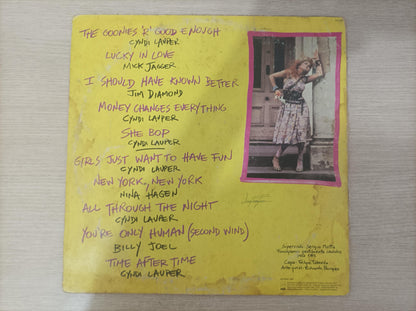 THE GOONIES 'R' GOOD ENOUGH
CYNDI LAUPER
LUCKY IN LOVE
MICK JAGGER
I SHOULD HAVE KNOWN BETTER
JIM DIAMOND
MONEY CHANGES EVERYTHING
CYNDI LAUPER
SHE BOP
CYNDI LAUPER
GIRLS JUST WANT TO HAVE FUN
CYNDI LAUPER
NEW YORK, NEW YORK
NINA HAGEN
ALL THROUGH THE NIGHT
CYNDI LAUPER
YOU'RE ONLY HUMAN (SECOND WIND)
BILLY JOEL
TIME AFTER TIME
CYNDI LAUPER
Supervisão: Sérgio Motta
Fonogramas gentilmente cedidos
pela CBS
Capa: Felipe Taborda